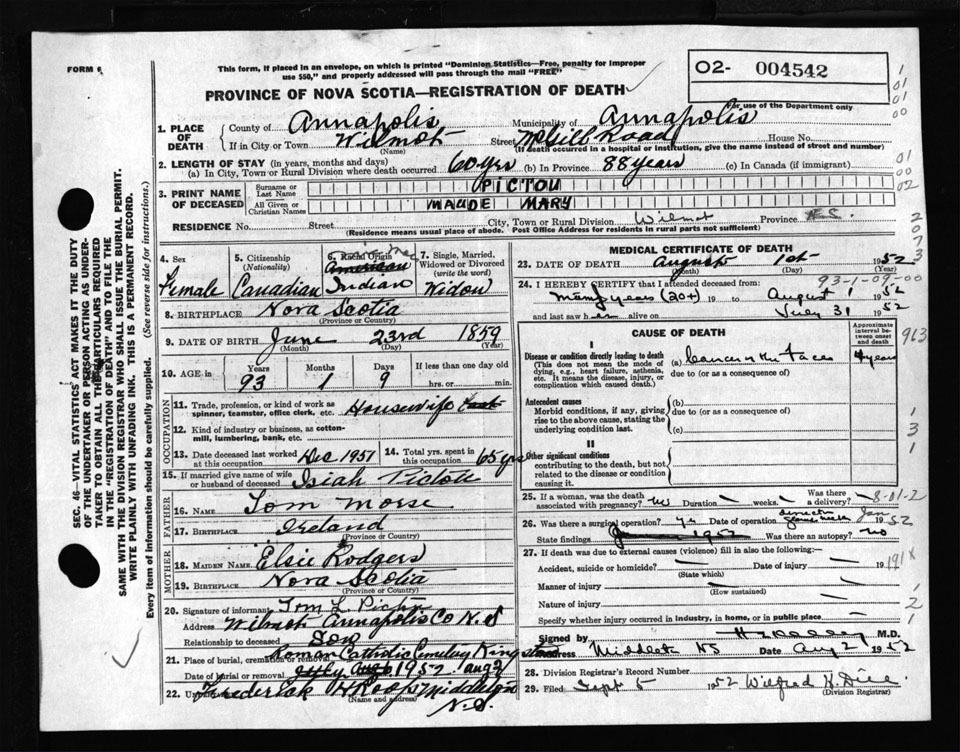 FORM 6
This form, if placed in an envelope, on which is printed "Dominion Statistics—Free, penalty for improper
use $50," and properly addressed will pass through the mail "FREE"
02- 004542
PROVINCE OF NOVA SCOTIA—REGISTRATION OF DEATH
For use of the Department only
1. PLACE OF DEATH
County of Annapolis Municipality of Annapolis
If in City or Town Wilmot Street McGill Road House No.
(Name) (If death occurred in a hospital or institution, give the name instead of street and number)
2. LENGTH OF STAY (in years, months and days)
(a) In City, Town or Rural Division where death occurred 60 yrs (b) In Province 88 years (c) In Canada (if immigrant)
3. PRINT NAME OF DECEASED
Surname or Last Name PICTOU
All Given or Christian Names MAUDE MARY
RESIDENCE No. Street City, Town or Rural Division Wilmot Province N.S.
(Residence means usual place of abode. Post Office Address for residents in rural parts not sufficient)
4. Sex Female
5. Citizenship (Nationality) Canadian
6. Racial Origin American Indian
7. Single, Married, Widowed or Divorced (write the word) Widow
8. BIRTHPLACE Nova Scotia
(Province or Country)
9. DATE OF BIRTH June 23rd 1859
(Month) (Day) (Year)
10. AGE in Years 93 Months 1 Days 9 If less than one day old
hrs. or min.
OCCUPATION
11. Trade, profession or kind of work as spinner, teamster, office clerk, etc. Housewife
12. Kind of industry or business, as cotton-mill, lumbering, bank, etc.
13. Date deceased last worked at this occupation Dec 1951
14. Total yrs. spent in this occupation 65 yrs
15. If married give name of wife or husband of deceased Isiah Pictou
FATHER
16. NAME Tom Morse
17. BIRTHPLACE Ireland
(Province or Country)
MOTHER
18. MAIDEN NAME Elsie Rodgers
19. BIRTHPLACE Nova Scotia
(Province or Country)
20. Signature of informant Tom L. Pictou
Address Wilmot Annapolis Co N.S
Relationship to deceased Son
21. Place of burial, cremation or removal Roman Catholic Cemetery Kingston
Date of burial or removal 1952 Aug 2
22. Undertaker Frederick H Roop Middleton N.S.
(Name and address)
MEDICAL CERTIFICATE OF DEATH
23. DATE OF DEATH August 1st 1952
(Month) (Day) (Year)
93-1-09-00
24. I HEREBY CERTIFY that I attended deceased from:
many years (20+) 19 to August 1 1952
and last saw her alive on July 31 1952
CAUSE OF DEATH
Approximate interval between onset and death
I
Disease or condition directly leading to death
(This does not mean the mode of dying, e.g., heart failure, asthenia, etc. It means the disease, injury, or complication which caused death.)
(a) Cancer of the face 4 years
due to (or as a consequence of)
Antecedent causes
Morbid conditions, if any, giving rise to the above cause, stating the underlying condition last.
(b)
due to (or as a consequence of)
(c)
II
Other significant conditions
contributing to the death, but not related to the disease or condition causing it.
25. If a woman, was the death associated with pregnancy? No Duration weeks. Was there a delivery?
8-01-2
26. Was there a surgical operation? Yr Date of operation Jan 1952
State findings Was there an autopsy? no
27. If death was due to external causes (violence) fill in also the following:—
Accident, suicide or homicide? Date of injury 19
(State which)
Manner of injury
(How sustained)
Nature of injury
Specify whether injury occurred in industry, in home, or in public place
Signed by M.D.
Address Middleton NS Date Aug 2 1952
28. Division Registrar's Record Number
29. Filed Sept 5 1952
(Division Registrar)
SEC. 46—VITAL STATISTICS ACT MAKES IT THE DUTY
OF THE UNDERTAKER OR PERSON ACTING AS UNDER-
TAKER TO OBTAIN ALL THE PARTICULARS REQUIRED
IN THE "REGISTRATION OF DEATH" AND TO FILE THE
SAME WITH THE DIVISION REGISTRAR WHO SHALL ISSUE THE BURIAL PERMIT.
WRITE PLAINLY WITH UNFADING INK. THIS IS A PERMANENT RECORD.
Every item of information should be carefully supplied. (See reverse side for instructions.)